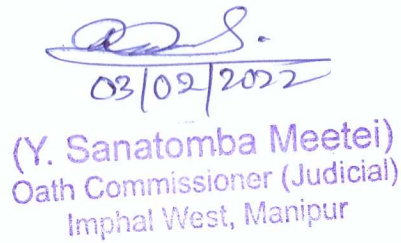 03/02/2022
(Y. Sanatomba Meetei)
Oath Commissioner (Judicial)
Imphal West, Manipur